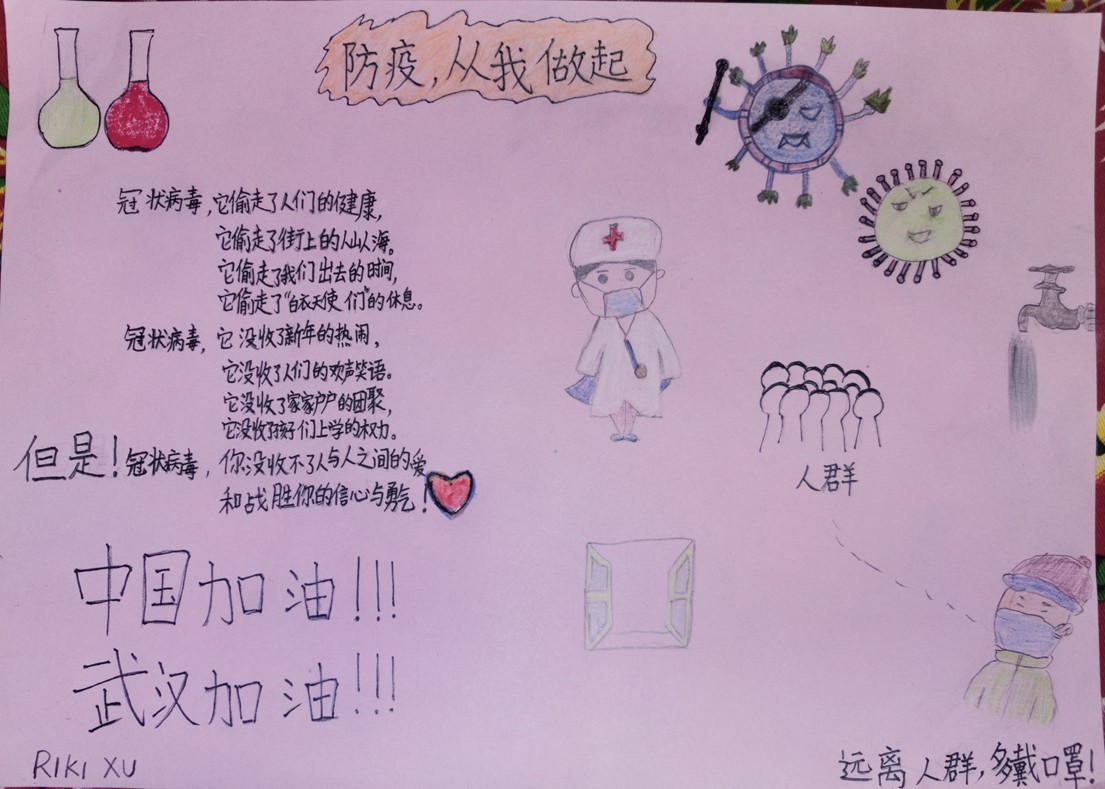 防疫,从我做起
冠状病毒,它偷走了人们的健康,
它偷走了街上的人山人海。
它偷走了我们出去的时间,
它偷走了“白衣天使们”的休息。
冠状病毒,它没收了新年的热闹,
它没收了人们的欢声笑语。
它没收了家家户户的团聚,
它没收了孩子们上学的权力。
但是!冠状病毒,你没收不了人与人之间的爱
和战胜你的信心与勇气!
中国加油!!!
武汉加油!!!
RIKI XU
人群
远离人群,多戴口罩!